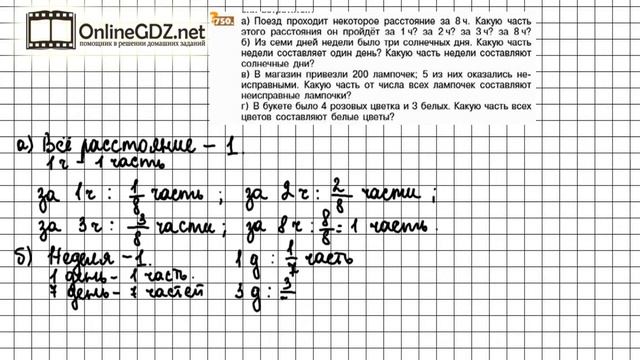 OnlineGDZ.net
помощник в решении домашних заданий
750.
а) Поезд проходит некоторое расстояние за 8 ч. Какую часть
этого расстояния он пройдёт за 1 ч? за 2 ч? за 3 ч? за 8 ч?
б) Из семи дней недели было три солнечных дня. Какую часть
недели составляет один день? Какую часть недели составляют
солнечные дни?
в) В магазин привезли 200 лампочек; 5 из них оказались не-
исправными. Какую часть от числа всех лампочек составляют
неисправные лампочки?
г) В букете было 4 розовых цветка и 3 белых. Какую часть всех
цветов составляют белые цветы?
а) Всё расстояние – 1.
1 ч – 1 часть
за 1 ч : 1/8 часть ; за 2 ч : 2/8 части ;
за 3 ч : 3/8 части ; за 8 ч : 8/8 = 1 часть .
б) Неделя – 1. 1 д : 1/7 часть
1 день – 1 часть.
7 день – 7 частей 3 д : 3/